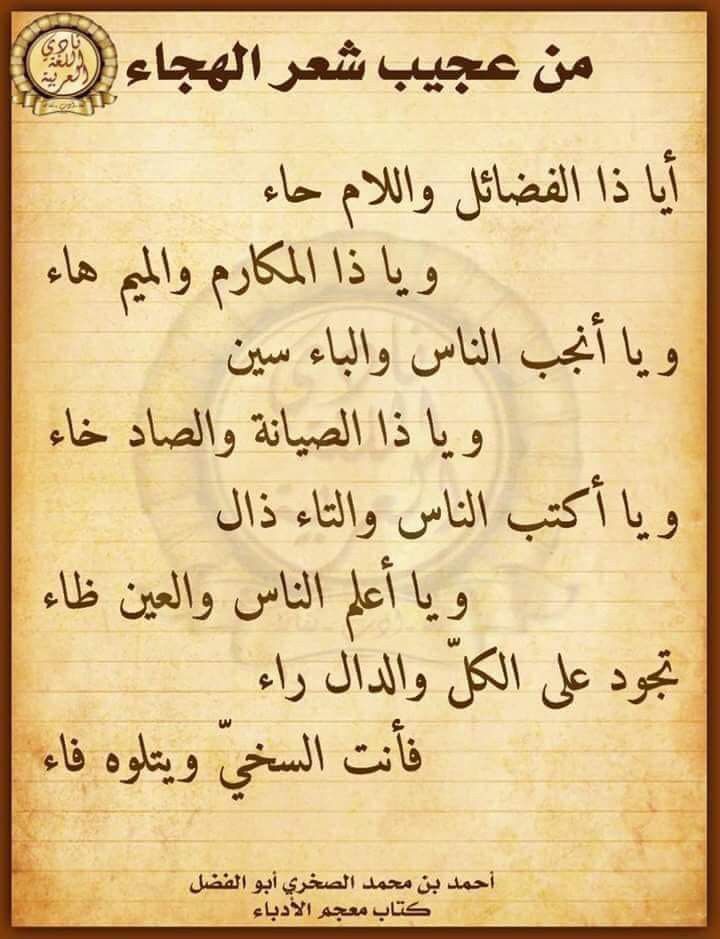 نادي
اللغة
العربية
من عجيب شعر الهجاء
أيا ذا الفضائل واللام حاء
و يا ذا المكارم والميم هاء
و يا أنجب الناس والباء سين
و يا ذا الصيانة والصاد خاء
و يا أكتب الناس والتاء ذال
و يا أعلم الناس والعين ظاء
تجود على الكلّ والدال راء
فأنت السخيّ ويتلوه فاء
أحمد بن محمد الصخري أبو الفضل
كتاب معجم الأدباء